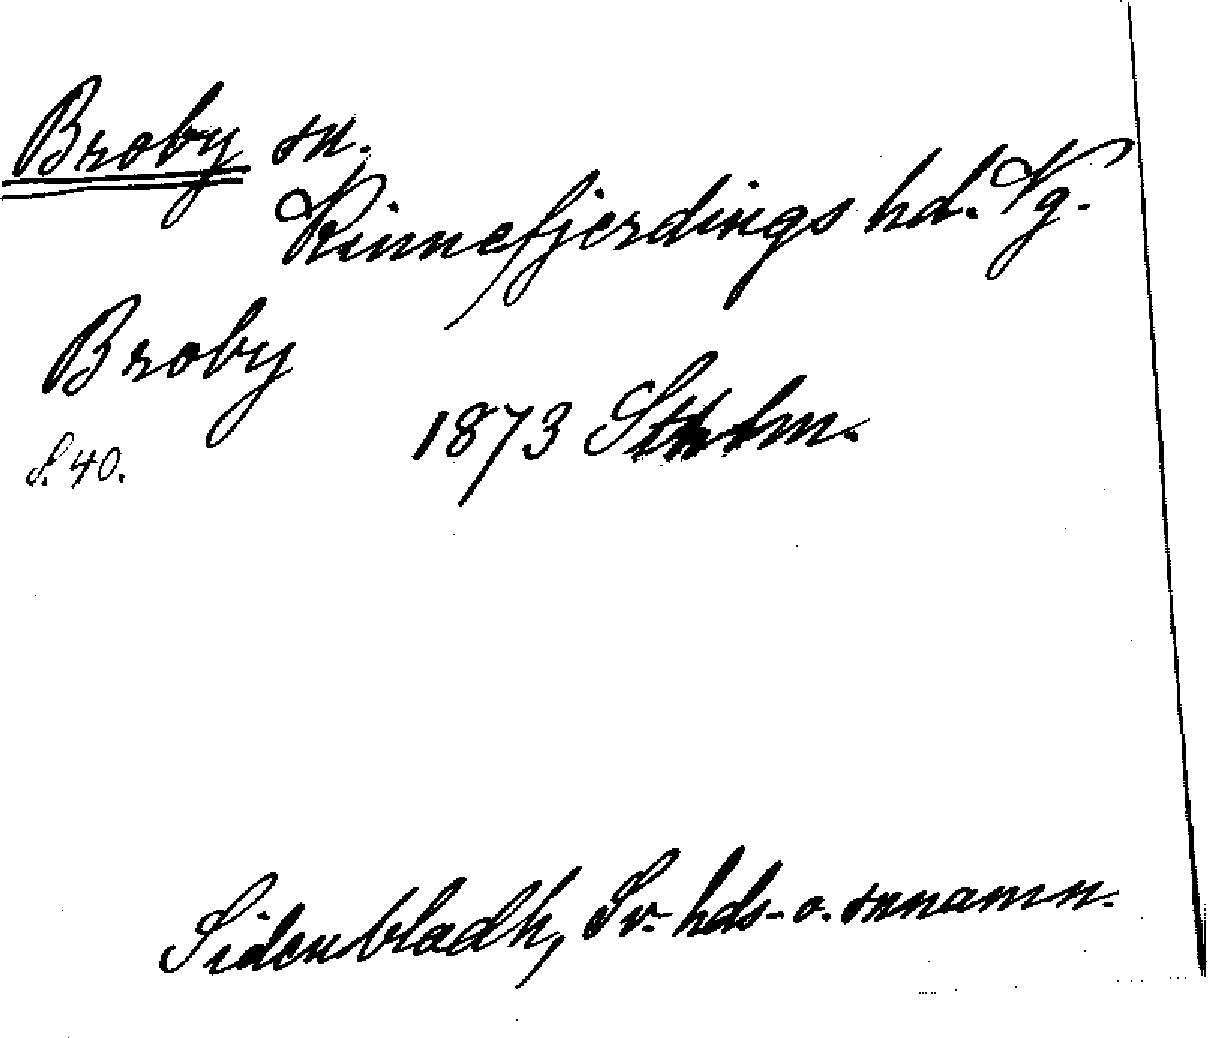 Broby sn.
Kinnefjerdings hd. Vg.
Broby
1873 Sthlm.
S. 40.
Sidenbladh, Sv. hds- o. snnamn.